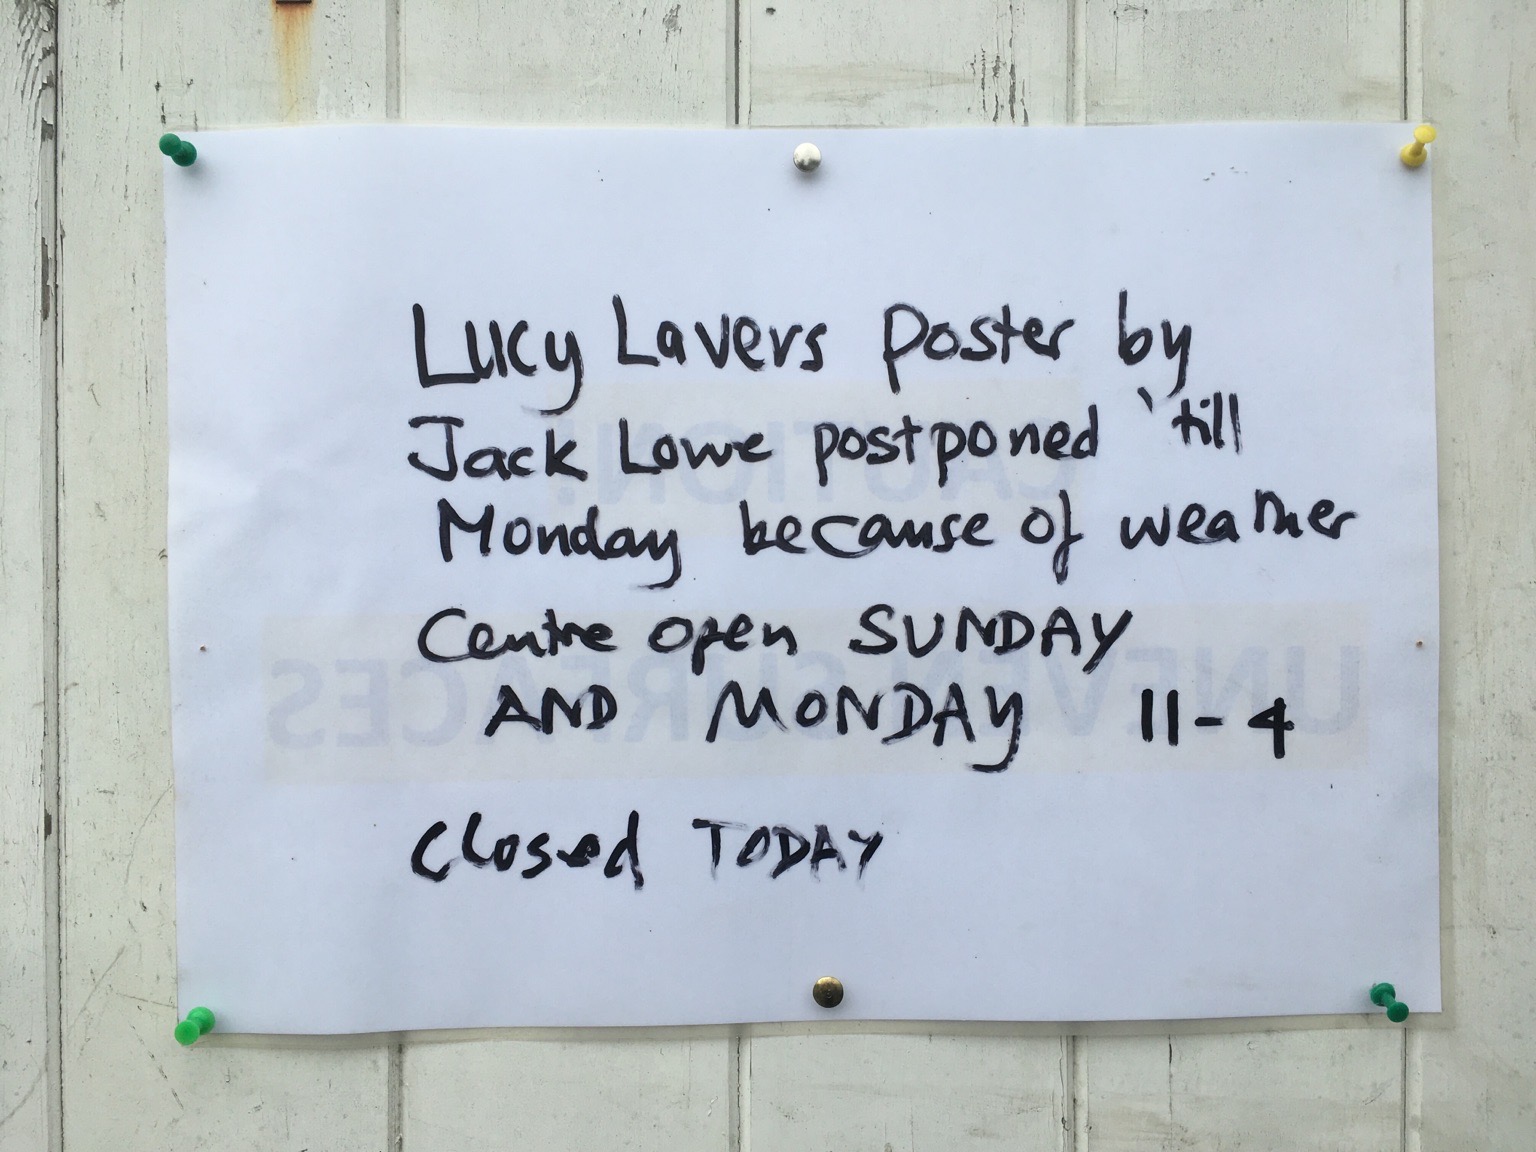 Lucy Lavers poster by
Jack Lowe postponed 'till
Monday because of weather
Centre open SUNDAY
AND MONDAY 11-4
Closed TODAY
CAUTION!
UNEVEN SURFACES